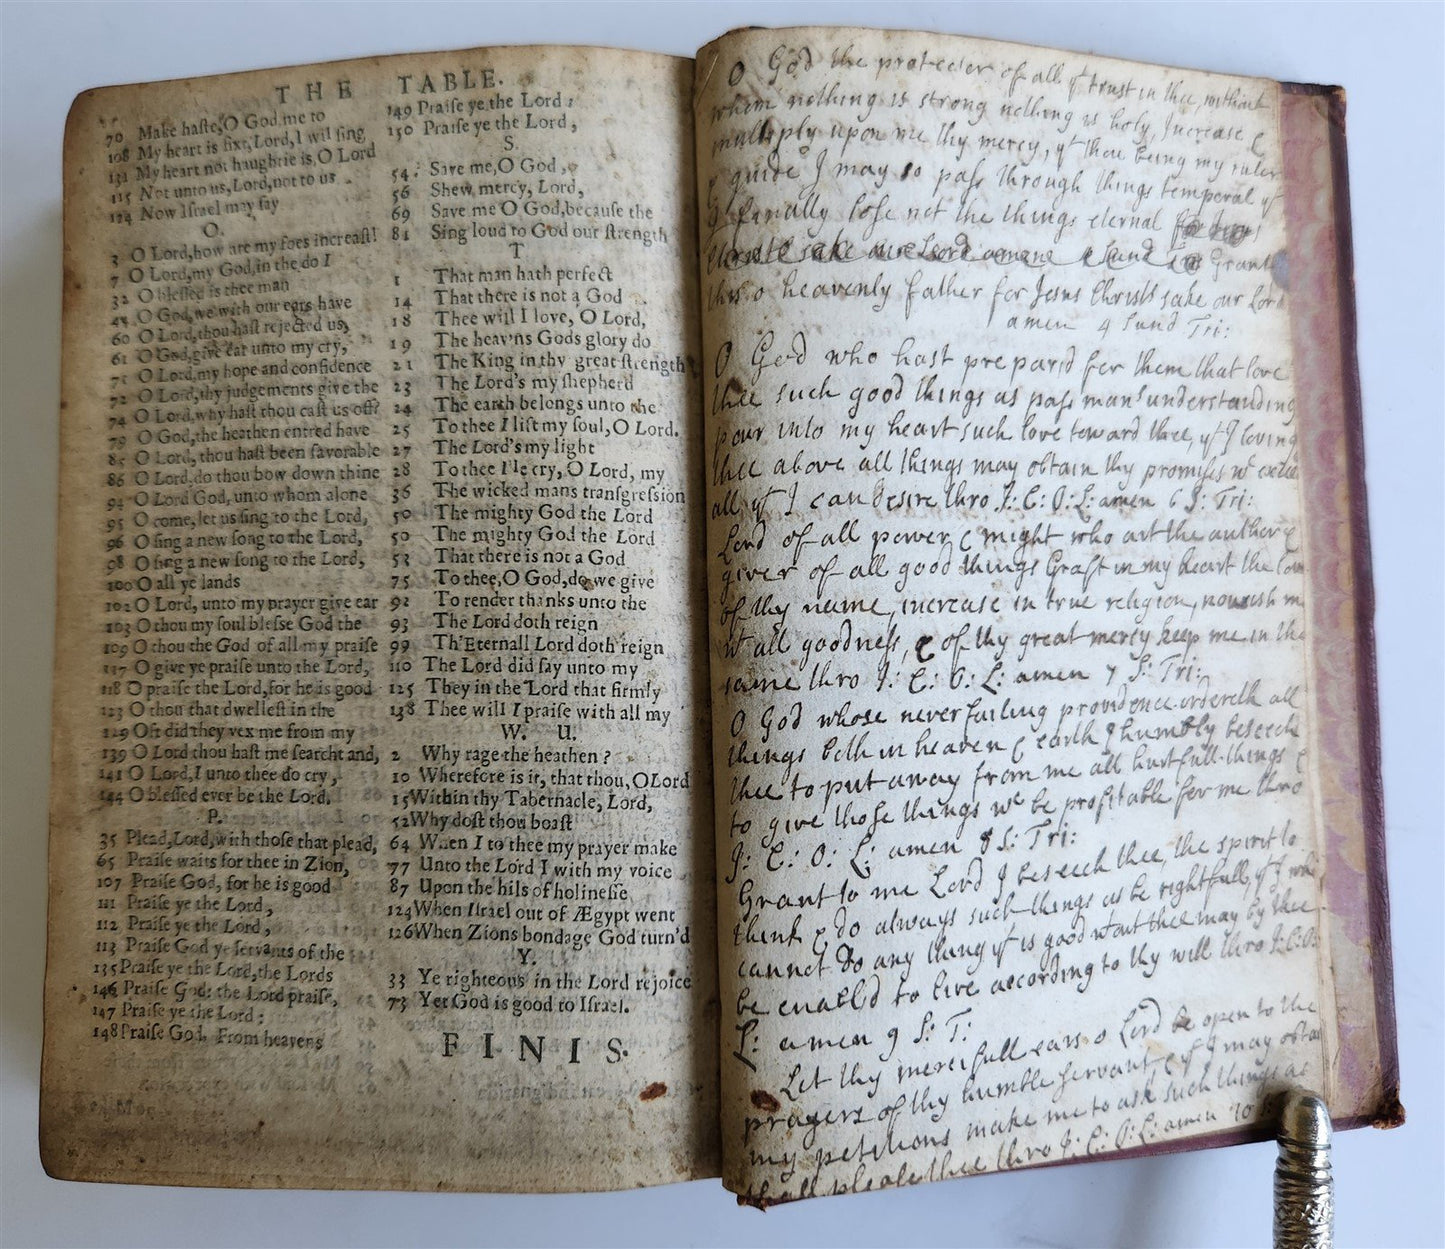 THE TABLE.
70 Make haste, O God me to
108 My heart is fixt, Lord, I wil sing
131 My heart not haughtie is, O Lord
115 Not unto us, Lord, not to us
124 Now Israel may say
O.
3 O Lord, how are my foes increast!
7 O Lord, my God, in the do I
32 O blessed is thee man
44 O God, we with our ears have
60 O Lord, thou hast rejected us,
61 O God, give ear unto my cry,
71 O Lord, my hope and confidence
72 O Lord, thy judgements give the
74 O Lord, why hast thou cast us off?
79 O God, the heathen entred have
85 O Lord, thou hast been favorable
86 O Lord, do thou bow down thine
94 O Lord God, unto whom alone
95 O come, let us sing to the Lord,
96 O sing a new song to the Lord,
98 O sing a new song to the Lord,
100 O all ye lands
102 O Lord, unto my prayer give ear
103 O thou my soul blesse God the
109 O thou the God of all my praise
117 O give ye praise unto the Lord,
118 O praise the Lord, for he is good
123 O thou that dwellest in the
129 Oft did they vex me from my
139 O Lord thou hast me searcht and,
141 O Lord, I unto thee do cry,
144 O blessed ever be the Lord,
P.
35 Plead, Lord, with those that plead,
65 Praise waits for thee in Zion,
107 Praise God, for he is good
111 Praise ye the Lord,
112 Praise ye the Lord,
113 Praise God ye servants of the
135 Praise ye the Lord, the Lords
146 Praise God: the Lord praise,
147 Praise ye the Lord:
148 Praise God, From heavens
149 Praise ye the Lord:
150 Praise ye the Lord,
S.
54 Save me, O God,
56 Shew mercy, Lord,
69 Save me O God, because the
81 Sing loud to God our strength
T
1 That man hath perfect
14 That there is not a God
18 Thee will I love, O Lord,
19 The heav'ns Gods glory do
21 The King in thy great strength
23 The Lord's my shepherd
24 The earth belongs unto the
25 To thee I lift my soul, O Lord.
27 The Lord's my light
28 To thee I'le cry, O Lord, my
36 The wicked mans transgression
50 The mighty God the Lord
50 The mighty God the Lord
53 That there is not a God
75 To thee, O God, do we give
92 To render thanks unto the
93 The Lord doth reign
99 Th'Eternall Lord doth reign
110 The Lord did say unto my
125 They in the Lord that firmly
138 Thee will I praise with all my
W. U.
2 Why rage the heathen?
10 Wherefore is it, that thou, O Lord
15 Within thy Tabernacle, Lord,
52 Why dost thou boast
64 When I to thee my prayer make
77 Unto the Lord I with my voice
87 Upon the hils of holinesse
124 When Israel out of Ægypt went
126 When Zions bondage God turn'd
Y.
33 Ye righteous in the Lord rejoice
73 Yet God is good to Israel.
FINIS.
O God the protecter of all yt trust in thee, without
whom nothing is strong nothing is holy, Increase &
multiply upon me thy mercy, yt thou being my ruler
& guide I may so pass through things temporal yt
I finally lose not the things eternal for Jesus
Christs sake our Lord amene 4 Sund Tri Grant
this o heavenly father for Jesus Christs sake our Lord
amen 4 Sund Tri:
O God who hast prepard for them that love
thee such good things as pass mans understanding
pour into my heart such love toward thee, yt I loving
thee above all things may obtain thy promises wc exceed
all yt I can desire thro J: C: O: L: amen 6 S: Tri:
Lord of all power & might who art the author &
giver of all good things Graft in my heart the love
of thy name, increase in true religion, nourish me
wt all goodness, & of thy great mercy keep me in the
same thro J: C: O: L: amen 7 S: Tri:
O God whose never failing providence ordereth all
things both in heaven & earth I humbly beseech
thee to put away from me all hurtfull things &
to give those things wc be profitable for me thro
J: C: O: L: amen 8 S: Tri:
Grant to me Lord I beseech thee, the spirit to
think & do always such things as be rightfull, yt I who
cannot do any thing yt is good wtout thee may by thee
be enabl'd to live according to thy will thro J: C: O:
L: amen 9 S: T:
Let thy mercifull ears o Lord be open to the
prayers of thy humble servant, & yt I may obtain
my petitions make me to ask such things as
shall please thee thro J: C: O: L: amen 10